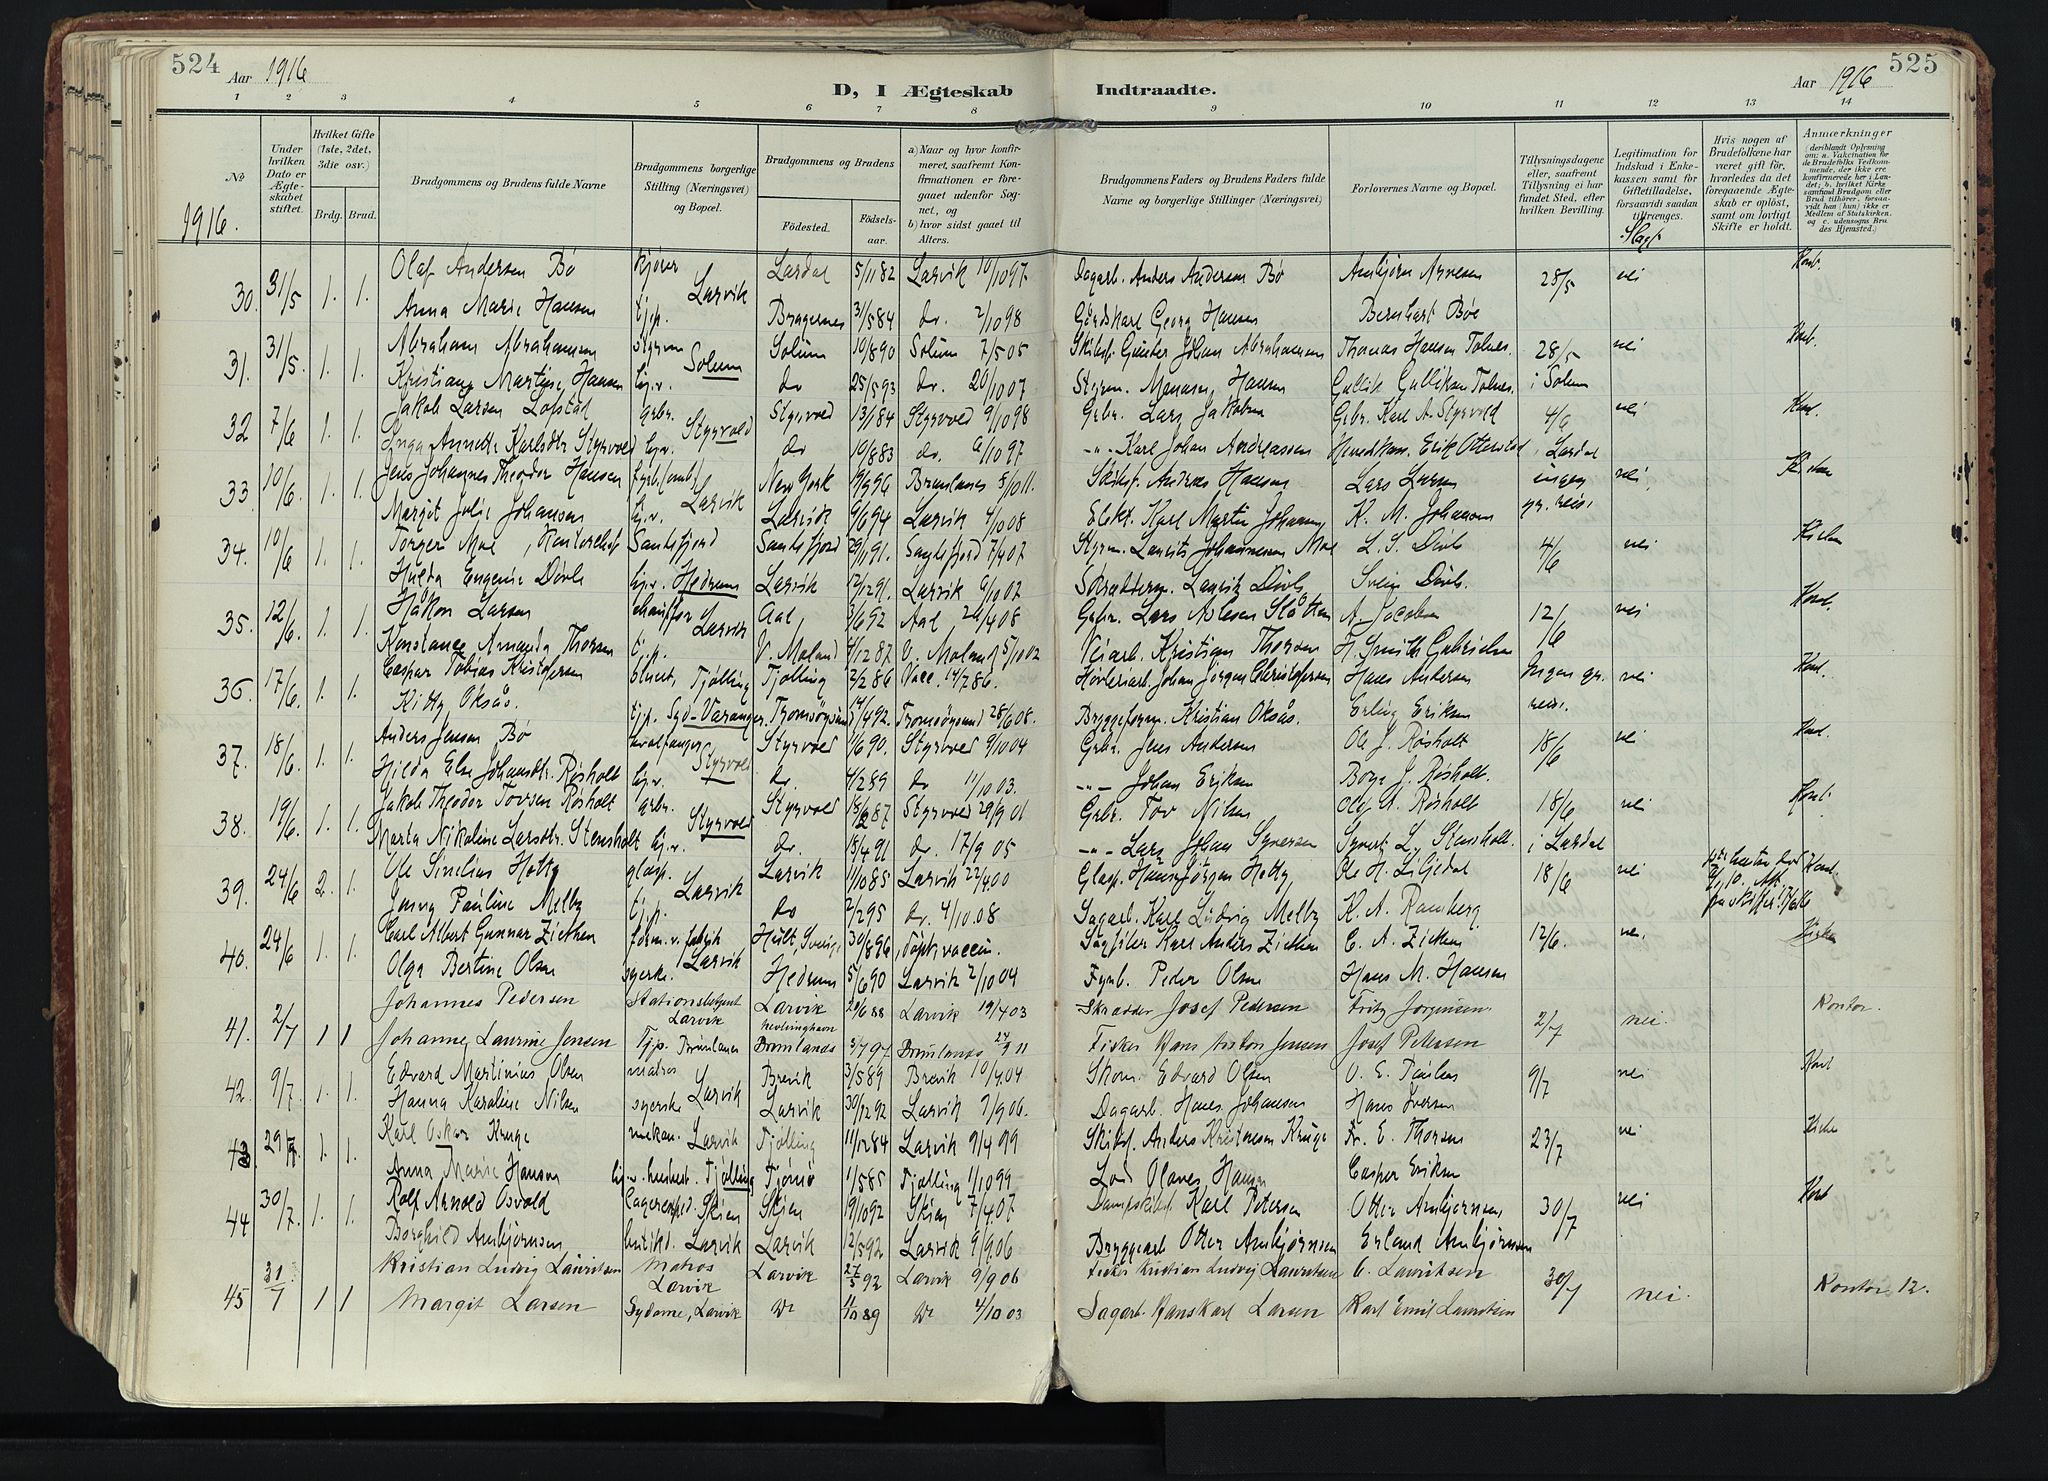 524 Aar 1916
D, I Ægteskab Indtraadte.
Aar 1916 525
1 2 3 4 5 6 7 8 9 10 11 12 13 14
No
Under hvilken Dato er Ægteskabet stiftet.
Hvilket Gifte (1ste, 2det, 3die osv.)
Brdg. Brud.
Brudgommens og Brudens fulde Navne
Brudgommens borgerlige Stilling (Næringsvei) og Bopæl.
Brudgommens og Brudens
Fødested. Fødselsaar.
a) Naar og hvor konfirmeret, saafremt Konfirmationen er foregaaet udenfor Sognet, og b) hvor sidst gaaet til Alters.
Brudgommens Faders og Brudens Faders fulde Navne og borgerlige Stillinger (Næringsvei)
Forlovernes Navne og Bopæl.
Tillysningsdagene eller, saafremt Tillysning ei har fundet Sted, efter hvilken Bevilling.
Legitimation for Indskud i Enkekassen samt for Giftetilladelse, forsaavidt saadan tiltrænges.
Hvis nogen af Brudefolkene har været gift før, hvorledes da det foregaaende Ægteskab er opløst, samt om lovligt Skifte er holdt.
Anmærkninger (deriblandt Oplysning om: a. Vakcination for de Brudefolks Vedkommende, der ikke ere konfirmerede her i Landet; b. hvilket Kirkesamfund Brudgom eller Brud tilhører, forsaavidt han (hun) ikke er Medlem af Statskirken, og c. udensogns Brudes Hjemsted.)
1916.
Slægt
30. 31/5 1. 1. Olaf Andersen Bø kjører Larvik Lardal 5/11 82 Larvik 10/10 97. Dagarb. Anders Andersen Bø Arnbjørn Arnesen 28/5 nei Kont.
Anna Marie Hansen tj.p. Bragernes 31/5 84 do. 2/10 98 Gårdskarl Georg Hansen Bernhart Bøe
31. 31/5. 1. 1. Abraham Abrahamsen styrm Solum Solum 10/8 90 Solum 7/5 05 Skibsf. Günter Johan Abrahamsen Thomas Hansen Tolnes. 28/5 nei Kont.
Kristiane Martine Hansen hj.v. do 25/5 93 do. 20/10 07 Styrm. Hansen Gullik Gulliksen Tolnes. i Solum
32 7/6 1. 1. Jakob Larsen Lofstad grbr. Styrvold Styrvold 13/1 84 Styrvold 9/10 98 Grbr. Lars Jakobsen Gbr. Karl A. Styrvold 4/6 nei Kont.
Inga Annette Karlsdtr Styrvold hj.v. do 10/8 83 do. 6/10 97 -"- Karl Johan Andreassen Erik Otterstad i Lardal
33. 10/6. 1. 1. Jens Johannes Theodor Hansen Larvik New York 19/9 96 Brunlanes 8/10 11. Skibsf. Andreas Hansen Lars Larsen ingen nei. Kirken
Margit Julie Johansen hj.v. Larvik 9/6 94 Larvik 4/10 08 Elekt. Karl Martin Johansen K. M. Johansen gr. reise
34. 10/6 1. 1. Torger Moe, Kontorchef Sandefjord Sandefjord 29/1 91. Sandefjord 7/4 07 Styrm. Laurits Johannesen Moe L. S. Dövle 4/6 nei Kirken
Hulda Eugenie Dövle hj.v. Hedrum Larvik 12/12 91. Larvik 6/10 07 Laurits Dövle Svein Dövle.
35. 12/6. 1. 1. Håkon Larsen chauffør Larvik Aal, 3/6 92 Aal 26/4 08 Grbr. Lars Slåtten A. Jacobsen 12/6 nei Kont.
Konstance Amanda Thorsen tj.p. V. Moland 4/12 87 V. Moland 5/10 02 Veiarb. Kristian Thorsen H. Smith Gabrielsen
36. 17/6. 1. 1. Caspar Tobias Kristofersen Tjølling Tjølling 2/2 86 Vacc. 14/7 86. Høvleriarb. Johan Jörgen Christofersen Hans Andersen Ingen gr. nei Kont.
Kitty Oksås. tjp. Syd-Varanger. Tromsøysund 14/4 92. Tromsøysund 28/6 08. Bryggeform. Kristian Oksås. Erling Eriksen reise.
37. 18/6. 1. 1. Anders Jensen Bø hvalfanger Styrvold Styrvold 11/6 90. Styrvold 9/10 04 Grbr. Jens Andersen Ole J. Røsholt 18/6 nei Kont.
Hilda Else Johansdtr. Røsholt hj.v. do. 4/2 89 do 11/10 03. -"- Johan Eriksen Borge J. Røsholt.
38. 19/6. 1. 1. Jakob Theodor Tovsen Røsholt grbr. Styrvold Styrvold 18/2 87 Styrvold 29/9 01 Grbr. Tov Nilsen Ole A. Røsholt 18/6 nei Kont.
Marta Nikoline Larsdtr. Stensholt hj.v. do. 18/4 91 do. 17/9 05 -"- Lars Johan Syversen Syvert L. Stensholt. i Lardal
39. 24/6 2. 1. Ole Sinelius Holty glasp. Larvik Larvik 11/10 85 Larvik 22/4 00 Glasp. Hans Jörgen Holty Ole H. Liljedal 18/6 nei Kont.
Jenny Pauline Melby tj.p. do 2/2 95 do. 4/10 08 Sagarb. Karl Ludvig Melby K. A. Ramberg
40. 24/6 1. 1. Carl Albert Gunnar Ziethen form. v. fabrik Larvik Hult, Sverige 30/8 96, döpt, vaccin. Sagfiler Karl Anders Ziethen C. A. Ziethen 12/6. nei. Kirken
Olga Bertine Olsen syerske Hedrum 5/6 90 Larvik 2/10 04 Fyrb. Peder Olsen Hans M. Hansen
41. 2/7 1 1 Johannes Pedersen Stationsbetjent Larvik Larvik 20/6 88 Larvik 19/4 03 Skrædder Josef Pedersen Fritz Jorgensen. 2/7 nei. Kontor.
Johanne Laurine Jensen Tjp. Brunlanes Nevlunghavn Brunlanes 5/7 97 Brunlanes 24/9 11 Fisker Hans Anton Jensen Josef Petersen
42. 9/7. 1. 1. Edvard Martinius Olsen matros Larvik Brevik 3/5 89 Brevik 10/4.04 Skom. Edvard Olsen O. E. Paulsen 9/7 nei Kont
Hanna Karoline Nilsen syerske Larvik 30/12 92 Larvik 7/9 06. Dagarb. Hans Johansen Hans Iversen
43. 29/7 1. 1. Karl Oskar Kruge mekan. Larvik Tjølling 11/12 84 Larvik 9/4 99 Skibsf. Anders Kristensen Kruge Fr. E. Thorsen 23/7 nei Kirke
Anna Marie Hansen Tjølling Tjømø 1/5 85 Tjølling 1/10 99 Lods Olaves Hansen Casper Eriksen
44 30/7. 1. 1. Rolf Arnold Osvold Lagerexped. Skien Skien 19/10 92 Skien 7/4.07 Dampskibsf. Karl Petersen Otter Arnbjørnsen 30/7 nei Kont
Borghild Arnbjørnsen butikd. Larvik Larvik 12/5 92 Larvik 9/9.06 Bryggearb Otter Arnbjørnsen Erland Arnbjørnsen
45 31/7 1 1 Kristian Ludvig Lauritsen Matros Larvik Larvik 27/5 92 Larvik 9/9 06 Fisker Kristian Ludvig Lauritsen C. Lauritsen 30/7 nei. Kontor 12.
Margit Larsen Sydame, Larvik Do 11/10 89 Do 4/10 03 Sagarb. Hans Karl Larsen Karl Emil Lauritsen